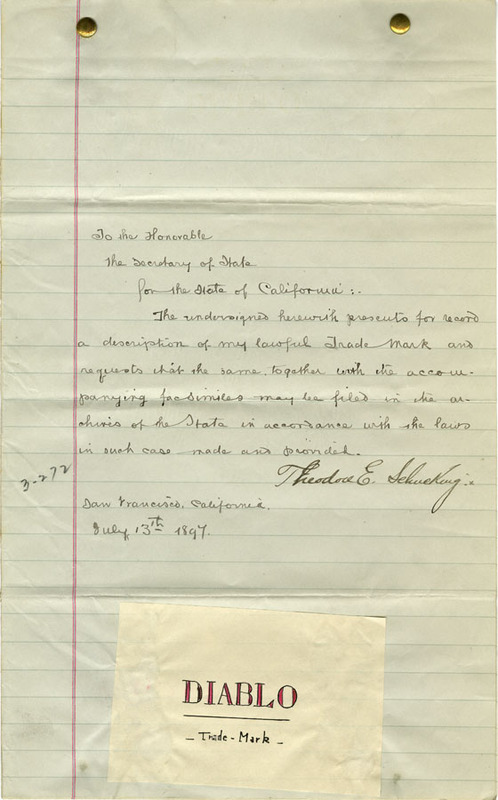 To the Honorable
the Secretary of State
for the State of California:-
The undersigned herewith presents for record
a description of my lawful Trade Mark and
requests that the same, together with the accom-
panying facsimiles may be filed in the ar-
chives of the State in accordance with the laws
in such case made and provided.
Theodore E. Schucking.
3-272
San Francisco, California.
July 13th 1897.
DIABLO
- Trade-Mark -